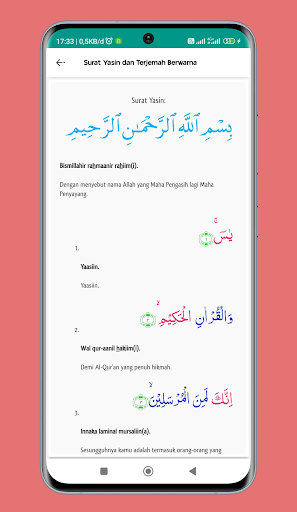 17:33 | 0,5KB/d
Surat Yasin dan Terjemah Berwarna
Surat Yasin:
بِسْمِ ٱللَّهِ ٱلرَّحْمَـٰنِ ٱلرَّحِيمِ
Bismillahir raḥmaanir raḥiim(i).
Dengan menyebut nama Allah yang Maha Pengasih lagi Maha
Penyayang.
يٰسۤ ۚ ١
1.
Yaasiin.
Yaasiin.
وَالْقُرْاٰنِ الْحَكِيْمِۙ ٢
2.
Wal qur-aanil ḥakiim(i).
Demi Al-Qur'an yang penuh hikmah.
اِنَّكَ لَمِنَ الْمُرْسَلِيْنَۙ ٣
3.
Innaka laminal mursaliin(a).
Sesungguhnya kamu adalah termasuk orang-orang yang